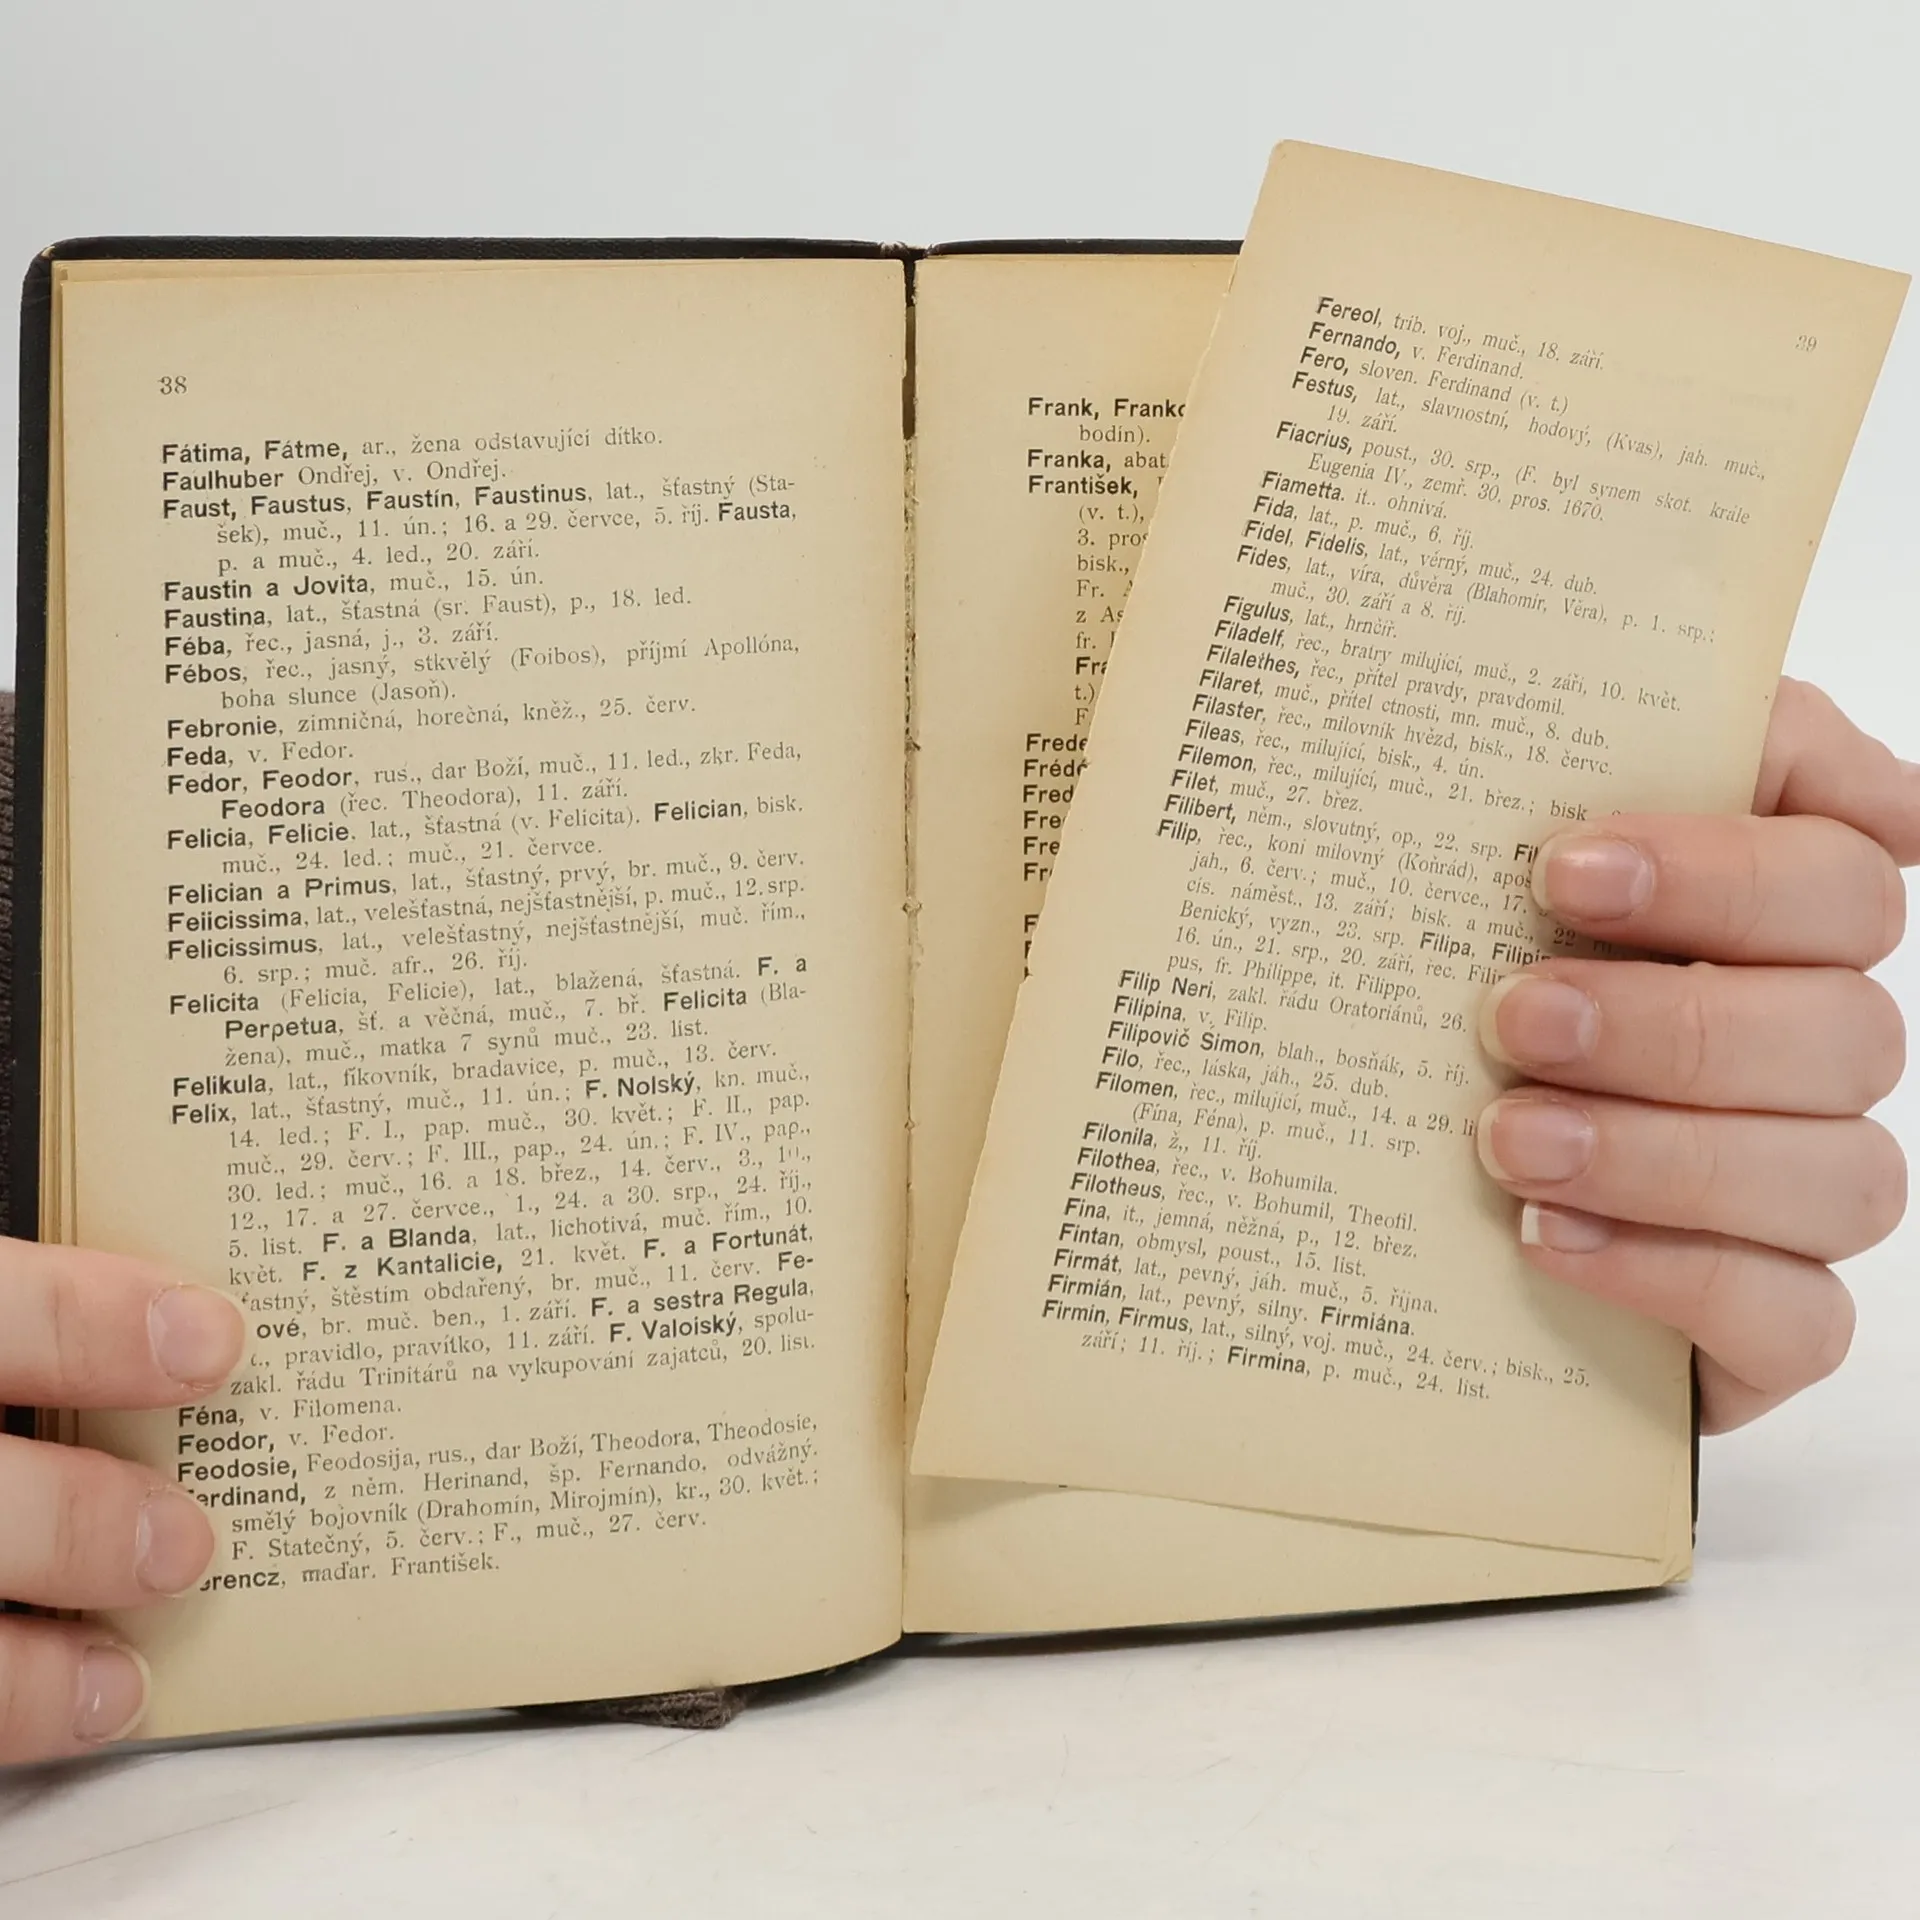 38
Fátima, Fátme, ar., žena odstavující dítko.
Faulhuber Ondřej, v. Ondřej.
Faust, Faustus, Faustín, Faustinus, lat., šťastný (Sta-
šek), muč., 11. ún.; 16. a 29. července, 5. říj. Fausta,
p. a muč., 4. led., 20. září.
Faustin a Jovita, muč., 15. ún.
Faustina, lat., šťastná (sr. Faust), p., 18. led.
Féba, řec., jasná, j., 3. září.
Fébos, řec., jasný, stkvělý (Foibos), příjmí Apollóna,
boha slunce (Jasoň).
Febronie, zimničná, horečná, kněž., 25. červ.
Feda, v. Fedor.
Fedor, Feodor, rus., dar Boží, muč., 11. led., zkr. Feda,
Feodora (řec. Theodora), 11. září.
Felicia, Felicie, lat., šťastná (v. Felicita). Felician, bisk.
muč., 24. led.; muč., 21. července.
Felician a Primus, lat., šťastný, prvý, br. muč., 9. červ.
Feiicissima, lat., velešťastná, nejšťastnější, p. muč., 12. srp.
Felicissimus, lat., velešťastný, nejšťastnější, muč. řím.,
6. srp.; muč. afr., 26. říj.
Felicita (Felicia, Felicie), lat., blažená, šťastná. F. a
Perpetua, šť. a věčná, muč., 7. bř. Felicita (Bla-
žena), muč., matka 7 synů muč., 23. list.
Felikula, lat., fíkovník, bradavice, p. muč., 13. červ.
Felix, lat., šťastný, muč., 11. ún.; F. Nolský, kn. muč.,
14. led.; F. I., pap. muč., 30. květ.; F. II., pap.
muč., 29. červ.; F. III., pap., 24. ún.; F. IV., pap.,
30. led.; muč., 16. a 18. břez., 14. červ., 3., 10.,
12., 17. a 27. červce., 1., 24. a 30. srp., 24. říj.,
5. list. F. a Blanda, lat., lichotivá, muč. řím., 10.
květ. F. z Kantalicie, 21. květ. F. a Fortunát,
astný, štěstím obdařený, br. muč., 11. červ. Fe-
ové, br. muč. ben., 1. září. F. a sestra Regula,
pravidlo, pravítko, 11. září. F. Valoiský, spolu-
zakl. řádu Trinitárů na vykupování zajatců, 20. list.
Féna, v. Filomena.
Feodor, v. Fedor.
Feodosie, Feodosija, rus., dar Boží, Theodora, Theodosie,
erdinand, z něm. Herinand, šp. Fernando, odvážný.
smělý bojovník (Drahomín, Mirojmín), kr., 30. květ.;
F. Statečný, 5. červ.; F., muč., 27. červ.
erencz, maďar. František.
39
Fereol, trib. voj., muč., 18. září.
Fernando, v. Ferdinand.
Fero, sloven. Ferdinand (v. t.)
Festus, lat., slavnostní, hodový, (Kvas), jah. muč.,
19. září.
Fiacrius, poust., 30. srp., (F. byl synem skot. krále
Eugenia IV., zemř. 30. pros. 1670.
Fiametta. it.. ohnivá.
Fida, lat., p. muč., 6. říj.
Fidel, Fidelis, lat., věrný, muč., 24. dub.
Fides, lat., víra, důvěra (Blahomír, Věra), p. 1. srp.;
muč., 30. září a 8. říj.
Figulus, lat., hrnčíř.
Filadelf, řec., bratry milující, muč., 2. září, 10. květ.
Filalethes, řec., přítel pravdy, pravdomil.
Filaret, muč., přítel ctnosti, mn. muč., 8. dub.
Filaster, řec., milovník hvězd, bisk., 18. červc.
Fileas, řec., milující, bisk., 4. ún.
Filemon, řec., milující, muč., 21. břez.; bisk
Filet, muč., 27. břez.
Filibert, něm., slovutný, op., 22. srp. Fil
Filip, řec., koni milovný (Koňrád), apoš
jáh., 6. červ.; muč., 10. července, 17.
cís. náměst., 13. září; bisk. a muč., 22
Benický, vyzn., 23. srp. Filipa, Filipin
16. ún., 21. srp., 20. září, řec. Filip
pus, fr. Philippe, it. Filippo.
Filip Neri, zakl. řádu Oratoriánů, 26.
Filipina, v. Filip.
Filipovič Šimon, blah., bosňák, 5. říj.
Filo, řec., láska, jáh., 25. dub.
Filomen, řec., milující, muč., 14. a 29. li
(Fína, Féna), p. muč., 11. srp.
Filonila, ž., 11. říj.
Filothea, řec., v. Bohumila.
Filotheus, řec., v. Bohumil, Theofil.
Fina, it., jemná, něžná, p., 12. břez.
Fintan, obmysl, poust., 15. list.
Firmát, lat., pevný, jáh. muč., 5. října.
Firmián, lat., pevný, silny. Firmiána.
Firmin, Firmus, lat., silný, voj. muč., 24. červ.; bisk., 25.
září; 11. říj.; Firmina, p. muč., 24. list.
Frank, Franko
bodín).
Franka, abat.
František,
(v. t.),
3. pros
bisk.,
Fr. A
z As
fr.
Fra
t.)
F
Frede
Frédé
Fred
Fre
Fre
Fr
F
F